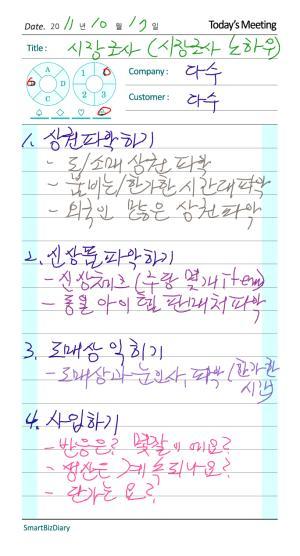 Date. 20 11 년 10 월 13 일 Today's Meeting
Title : 시장조사 (시장조사 노하우)
A B C D
1 2 3
Company : 다수
Customer : 다수
♤ ◇ ♡ ♧
1. 상권파악하기
- 도/소매 상권 파악
- 붐비는/한가한 시간대파악
- 외국인 많은 상권파악
2. 신상품파악하기
- 신상체크 (주당 몇개 item)
- 동일 아이템 판매처파악
3. 도매상 익히기
- 도매상과 눈인사, 파악 (한가한 시간)
4. 사입하기
- 반응은? 몇장이에요?
- 생산은 계속되나요?
- 단가는요?
SmartBizDiary